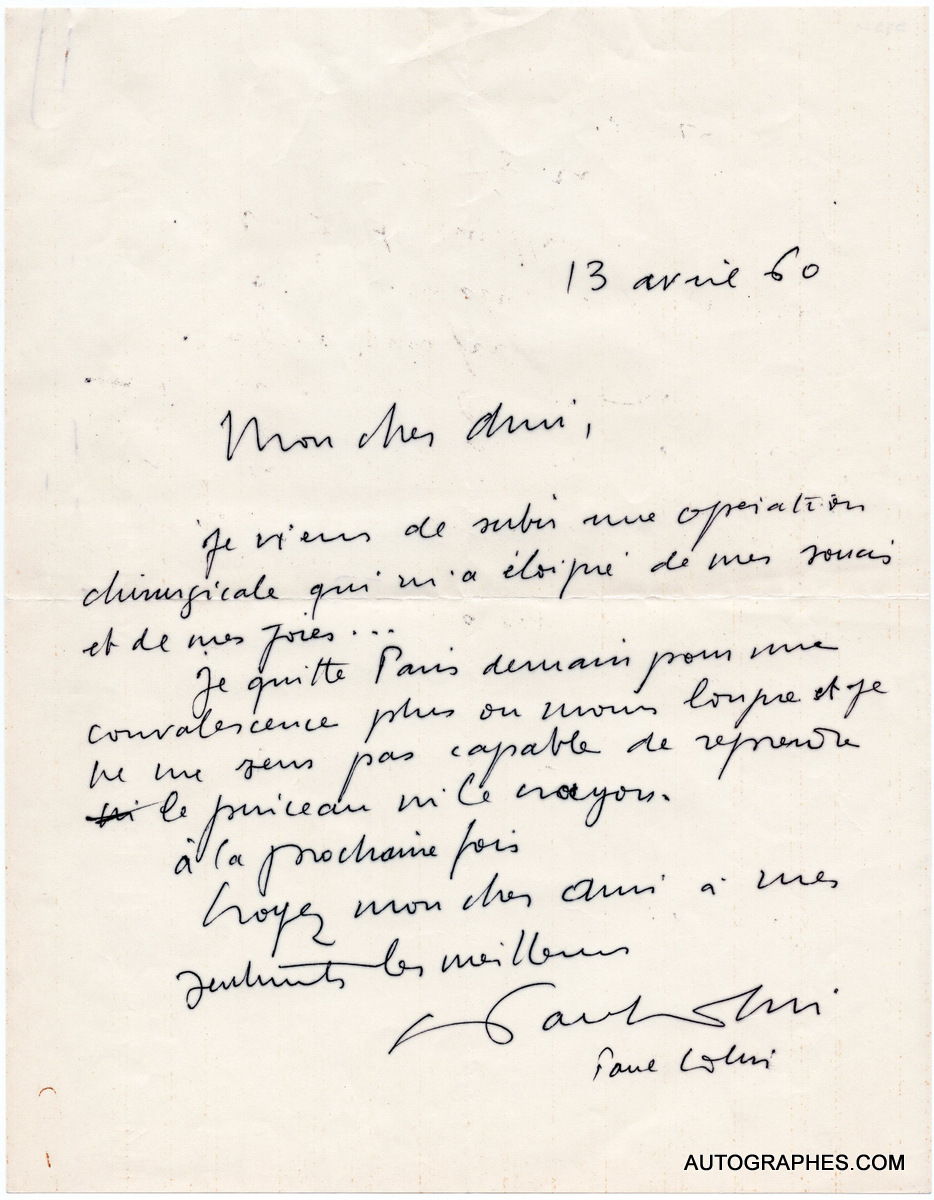 13 avril 60
Mon cher Ami,
Je viens de subir une opération
chirurgicale qui m'a éloigné de mes soucis
et de mes joies...
Je quitte Paris demain pour une
convalescence plus ou moins longue et je
ne me sens pas capable de reprendre
ni le pinceau ni le crayon.
à la prochaine fois
Croyez mon cher Ami à mes
sentiments les meilleurs
Paul Colin
Paul Colin
AUTOGRAPHES.COM